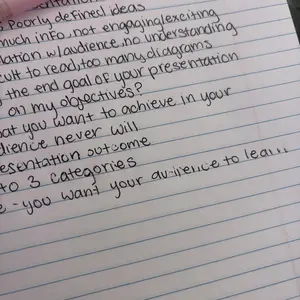 Poorly defined ideas
much info, not engaging/exciting
lation w/audience, no understanding
cult to read, too many diagrams
the end goal of your presentation
on my objectives?
at you want to achieve in your
dience never will
esentation outcome
to 3 categories
e - you want your audience to learn